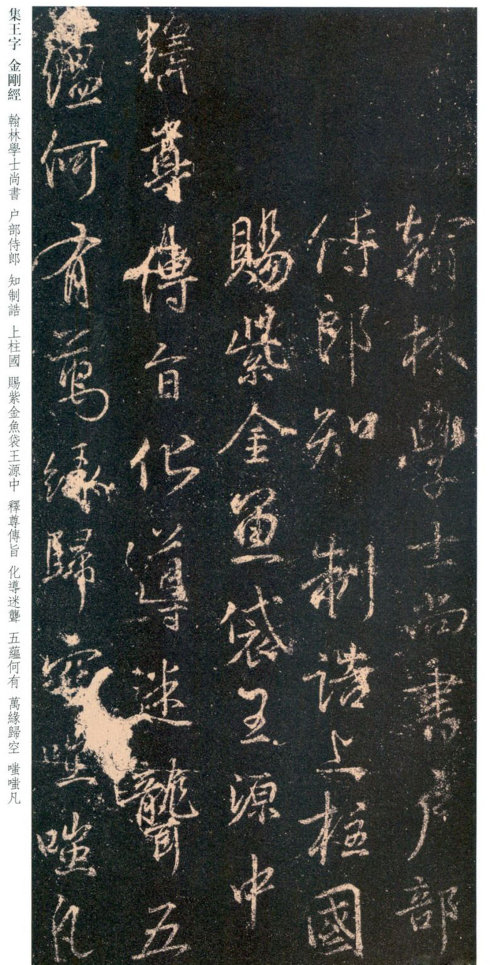 翰林學士尚書户部
侍郎知制誥上柱國
賜紫金魚袋王源中
釋尊傳旨化導迷聾五
蘊何有萬緣歸空嗤嗤凡
集王字 金剛經 翰林學士尚書 户部侍郎 知制誥 上柱國 賜紫金魚袋王源中 釋尊傳旨 化導迷聾 五蘊何有 萬緣歸空 嗤嗤凡